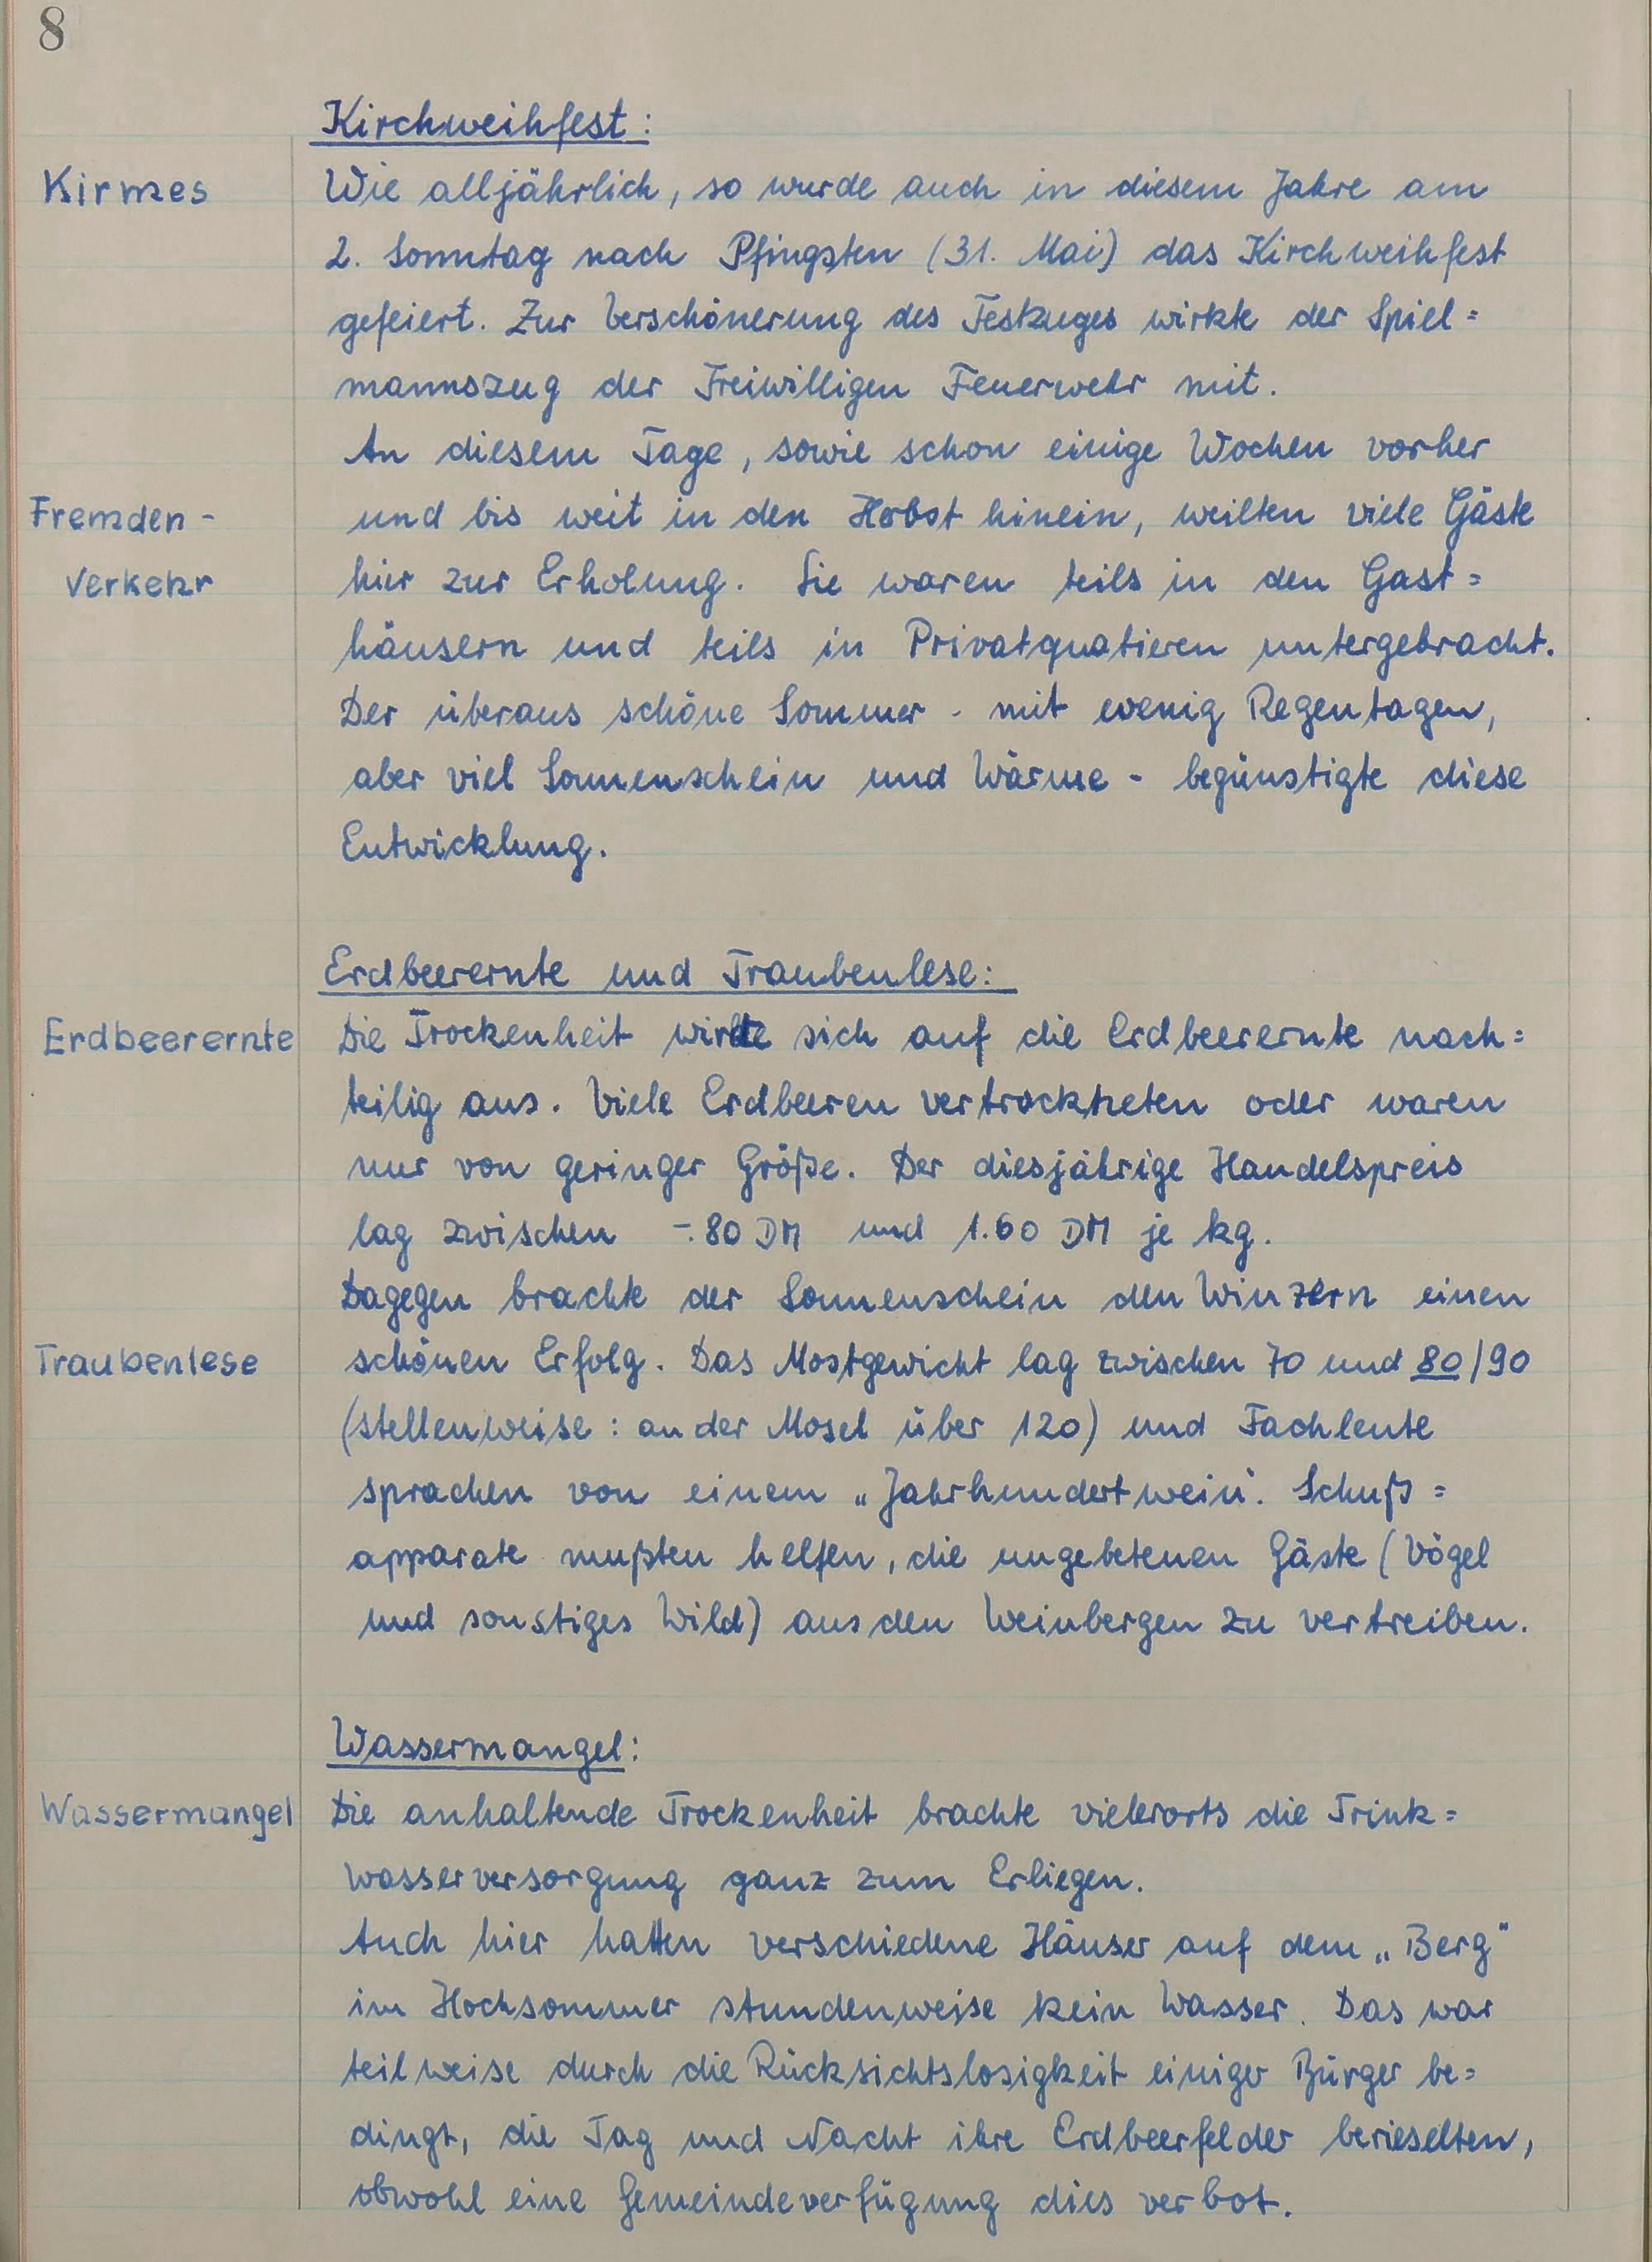 8
Kirchweihfest:
Kirmes
Wie alljährlich, so wurde auch in diesem Jahre am
2. Sonntag nach Pfingsten (31. Mai) das Kirchweihfest
gefeiert. Zur Verschönerung des Festzuges wirkte der Spiel=
mannszug der Freiwilligen Feuerwehr mit.
An diesem Tage, sowie schon einige Wochen vorher
Fremden-
und bis weit in den Herbst hinein, weilten viele Gäste
Verkehr
hier zur Erholung. Sie waren teils in den Gast=
häusern und teils in Privatquatieren untergebracht.
Der überaus schöne Sommer - mit wenig Regentagen,
aber viel Sonnenschein und Wärme - begünstigte diese
Entwicklung.
Erdbeerernte und Traubenlese:
Erdbeerernte
Die Trockenheit wirkte sich auf die Erdbeerernte nach=
teilig aus. Viele Erdbeeren vertrockneten oder waren
nur von geringer Größe. Der diesjährige Handelspreis
lag zwischen -.80 DM und 1.60 DM je kg.
Dagegen brachte der Sonnenschein den Winzern einen
Traubenlese
schönen Erfolg. Das Mostgewicht lag zwischen 70 und 80/90
(stellenweise: an der Mosel über 120) und Fachleute
sprachen von einem „Jahrhundertwein". Schuß=
apparate mußten helfen, die ungebetenen Gäste (Vögel
und sonstiges Wild) aus den Weinbergen zu vertreiben.
Wassermangel:
Wassermangel
Die anhaltende Trockenheit brachte vielerorts die Trink=
wasserversorgung ganz zum Erliegen.
Auch hier hatten verschiedene Häuser auf dem „Berg"
im Hochsommer stundenweise kein Wasser. Das war
teilweise durch die Rücksichtslosigkeit einiger Bürger be=
dingt, die Tag und Nacht ihre Erdbeerfelder berieselten,
obwohl eine Gemeindeverfügung dies verbot.